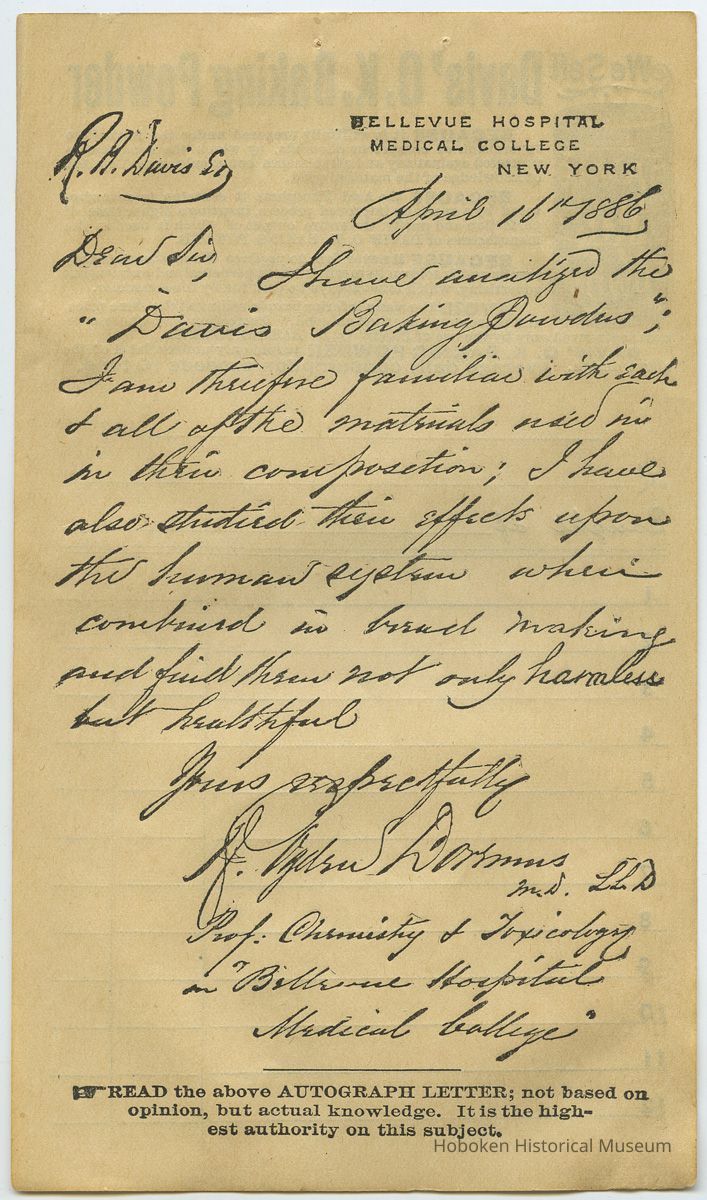 We Sell Davis' O. K. Baking Powder
BELLEVUE HOSPITAL
MEDICAL COLLEGE
NEW YORK
R. B. Davis Esq
April 16th 1886
Dear Sir, I have analized the
"Davis Baking Powders";
I am therefore familiar with each
& all of the materials used in
in their composition; I have
also studied their effects upon
the human system when
combined in bread making
and find them not only harmless
but healthful
Yours respectfully
R. Ogden Doremus
M.D. LLD
Prof: Chemistry & Toxicology
in "Bellevue Hospital
Medical College"
☞ READ the above AUTOGRAPH LETTER; not based on
opinion, but actual knowledge. It is the high-
est authority on this subject.
Hoboken Historical Museum